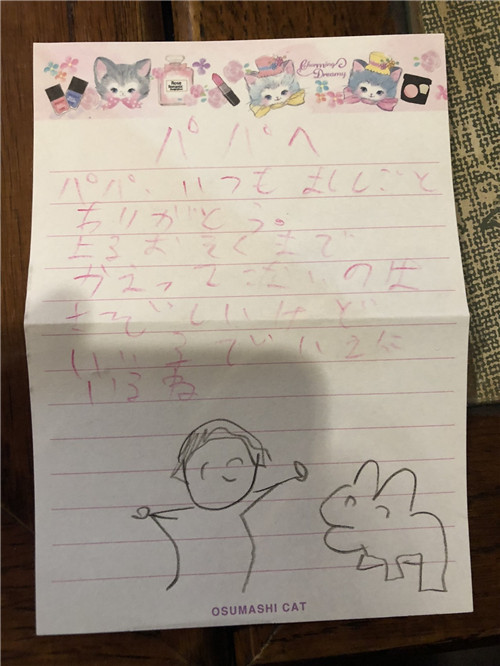 Charming
Dreamy
パパへ
パパ、いつもおしごと
ありがとう。
よるおそくまで
かえってこないのは
さびしいけど
いい子でいえに
いるね
OSUMASHI CAT